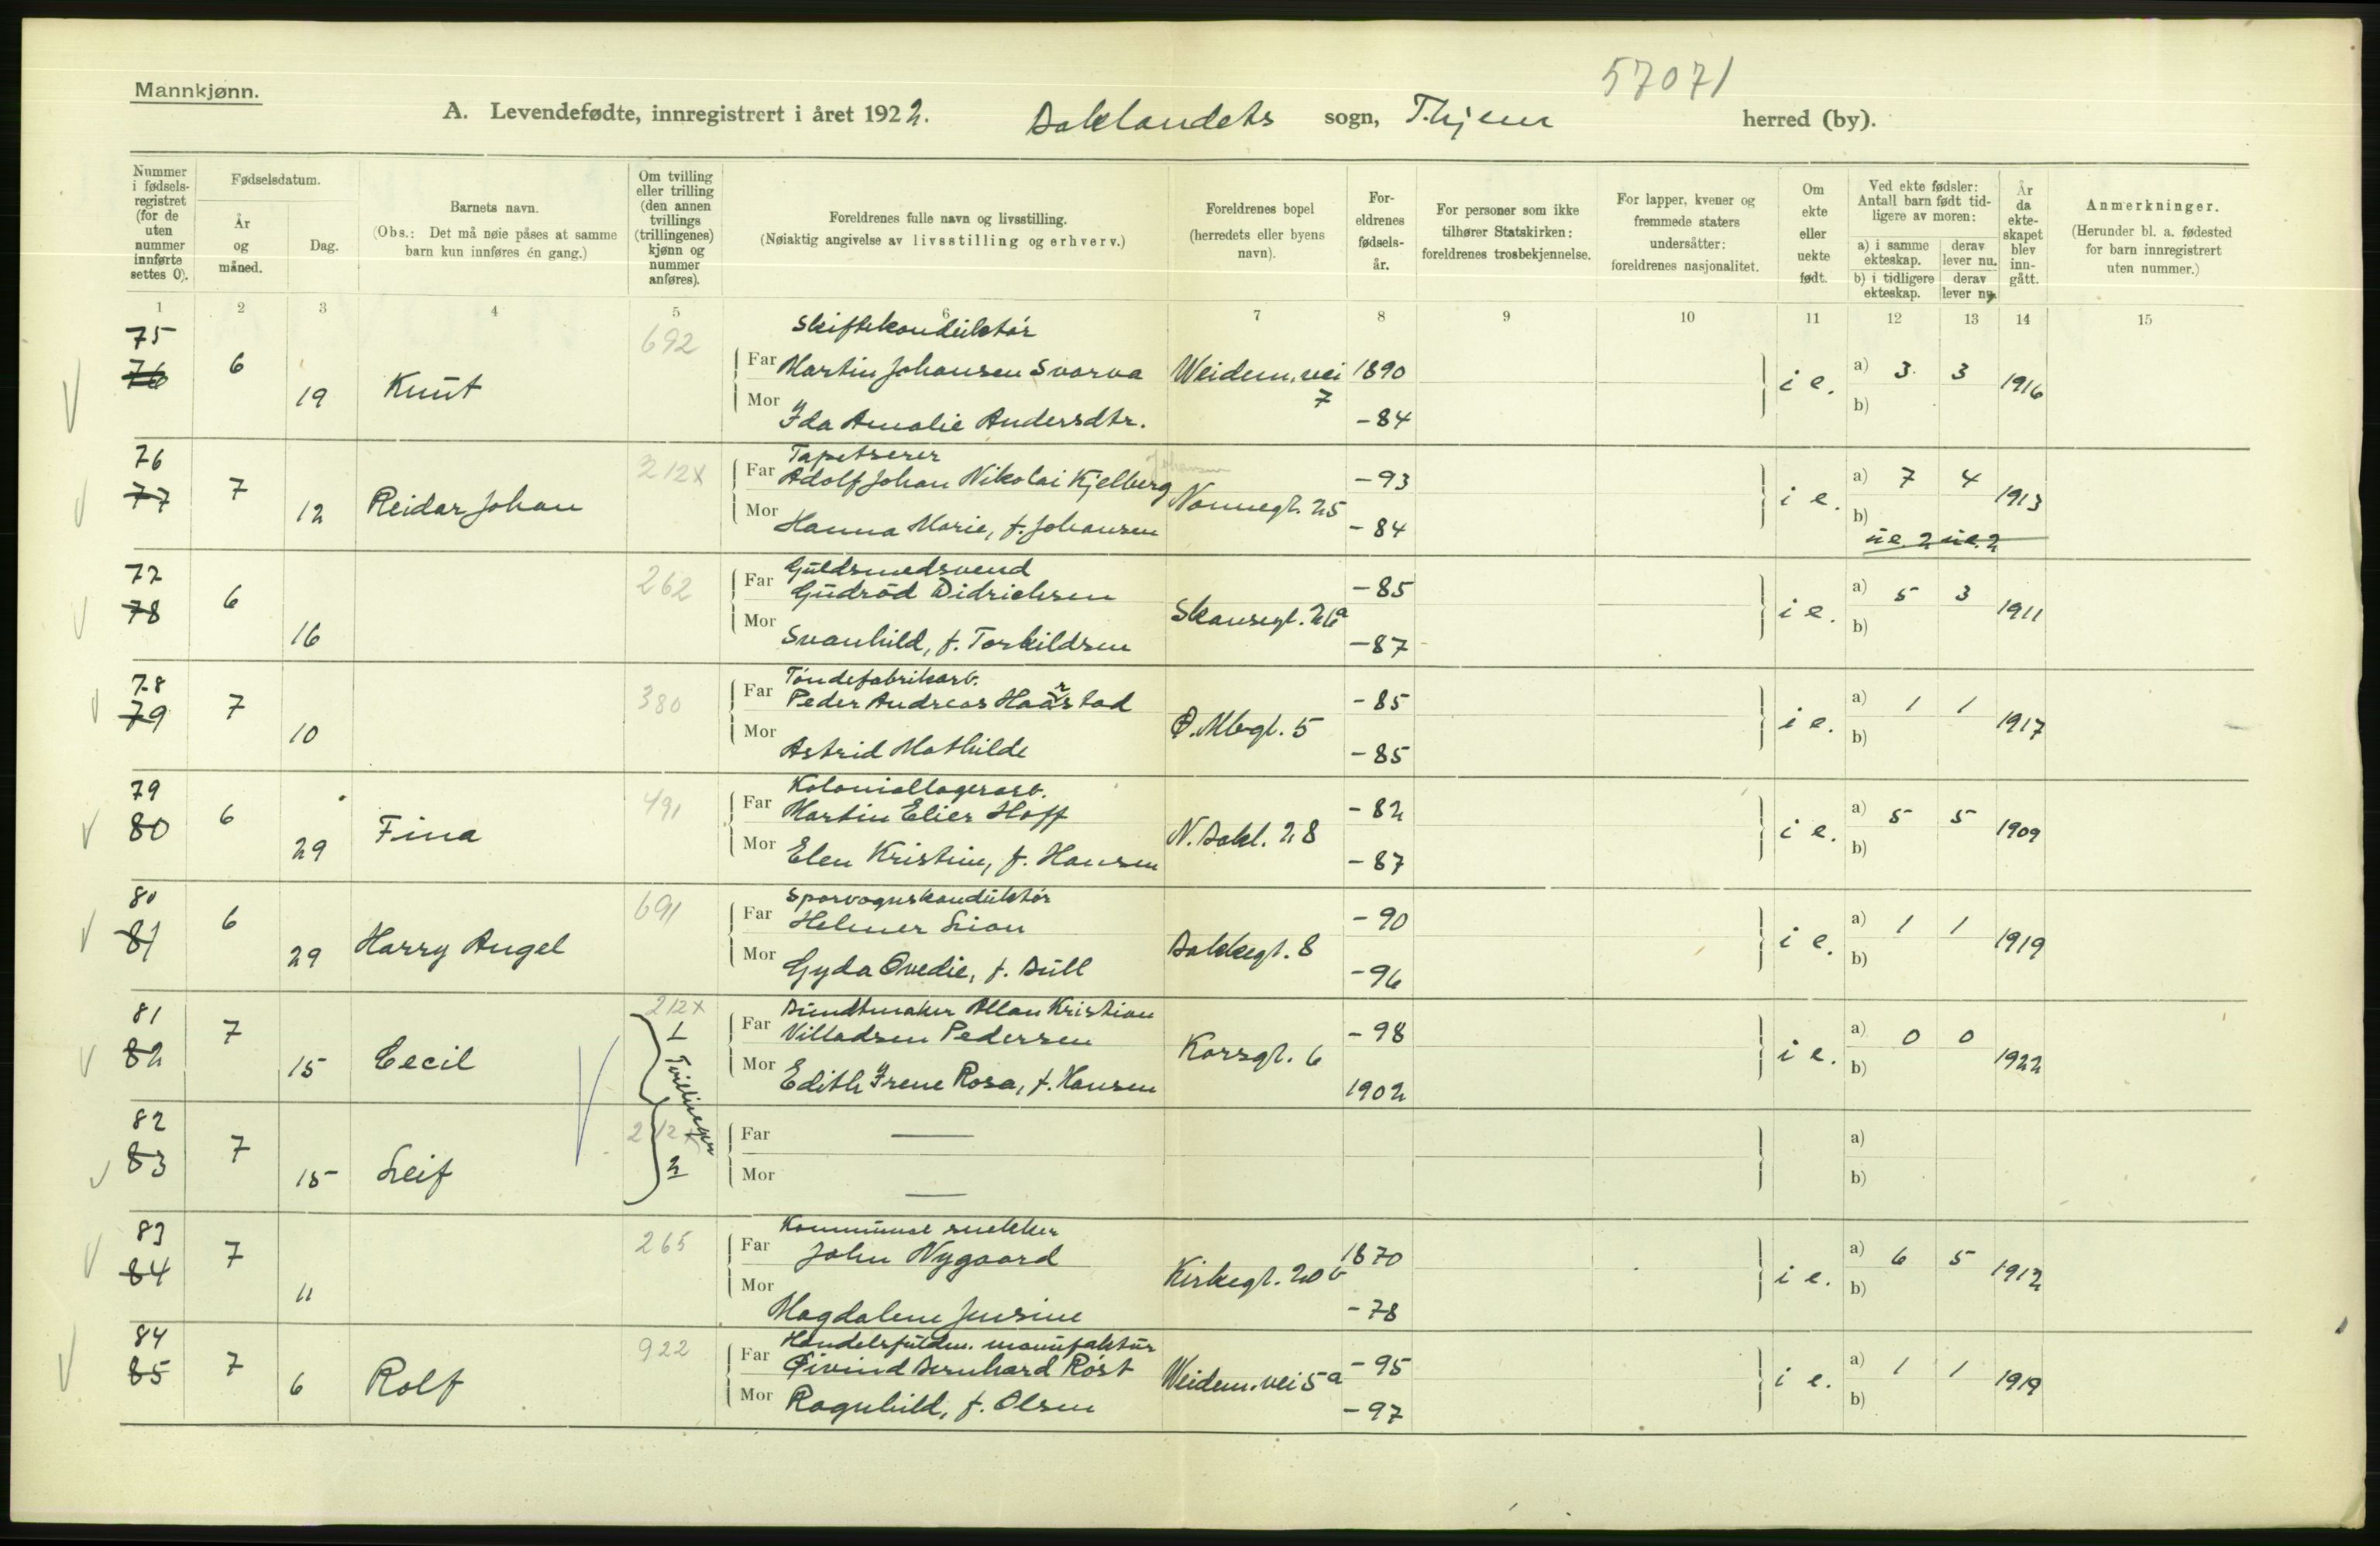 57071
Mannkjønn.
A. Levendefødte, innregistrert i året 1922. Baklandets sogn, T.hjem herred (by).
Nummer i fødsels-registret (for de uten nummer innførte settes 0).
Fødselsdatum.
År og måned.
Dag.
Barnets navn.
(Obs.: Det må nøie påses at samme barn kun innføres én gang.)
Om tvilling eller trilling (den annen tvillings (trillingenes) kjønn og nummer anføres).
Foreldrenes fulle navn og livsstilling.
(Nøiaktig angivelse av livsstilling og erhverv.)
Foreldrenes bopel (herredets eller byens navn).
For-eldrenes fødsels-år.
For personer som ikke tilhører Statskirken: foreldrenes trosbekjennelse.
For lapper, kvener og fremmede staters undersåtter: foreldrenes nasjonalitet.
Om ekte eller uekte født.
Ved ekte fødsler: Antall barn født tid-ligere av moren:
a) i samme ekteskap. derav lever nu.
b) i tidligere ekteskap. derav lever nu.
År da ekte-skapet blev inn-gått.
Anmerkninger.
(Herunder bl. a. fødested for barn innregistrert uten nummer.)
1 2 3 4 5 6 7 8 9 10 11 12 13 14 15
75 692 Skiftekonduktør
76 6 19 Knut Far Martin Johansen Svorva Weidem.vei 7 1890 i e. a) 3 3 1916
Mor Ida Amalie Andersdtr. -84 b)
76 212x Tapetserer Johansen
77 7 12 Reidar Johan Far Adolf Johan Nikolai Kjelberg Nonnegt. 25 -93 i e. a) 7 4 1913
Mor Hanna Marie, f. Johansen -84 b)
u e. 2 u e. 2
77 262 Guldsmedsvend
78 6 16 Far Gudrød Didriksen Skansegt. 26a -85 i e. a) 5 3 1911
Mor Svanhild, f. Torkildsen -87 b)
78 380 Tøndefabrikarb.
79 7 10 Far Peder Andreas Haarstad Ø. Mbgt. 5 -85 i e. a) 1 1 1917
Mor Astrid Mathilde -85 b)
79 491 Koloniallagerarb.
80 6 29 Fina Far Martin Elier Hoff N. Bakl. 28 -82 i e. a) 5 5 1909
Mor Elen Kristine, f. Hansen -87 b)
80 691 Sporvognskonduktør
81 6 29 Harry Angel Far Helmer Lion Bakkegt. 8 -90 i e. a) 1 1 1919
Mor Gyda Ovedie, f. Bull -96 b)
81 212x Bundtmaker Allan Kristian
82 7 15 Cecil 1 Tvillinger Far Villadsen Pedersen Korsgt. 6 -98 i e. a) 0 0 1922
Mor Edith Irene Rosa, f. Hansen 1902 b)
82 212x
83 7 15 Leif 2 Far — a)
Mor — b)
83 265 Kommunal snekker
84 7 11 Far John Nygaard Kirkegt. 20 b 1870 i e. a) 6 5 1912
Mor Magdalene Jensine -78 b)
84 922 Handelsfuldm. manufaktur
85 7 6 Rolf Far Øivind Bernhard Røst Weidem.vei 5a -95 i e. a) 1 1 1919
Mor Ragnhild, f. Olsen -97 b)